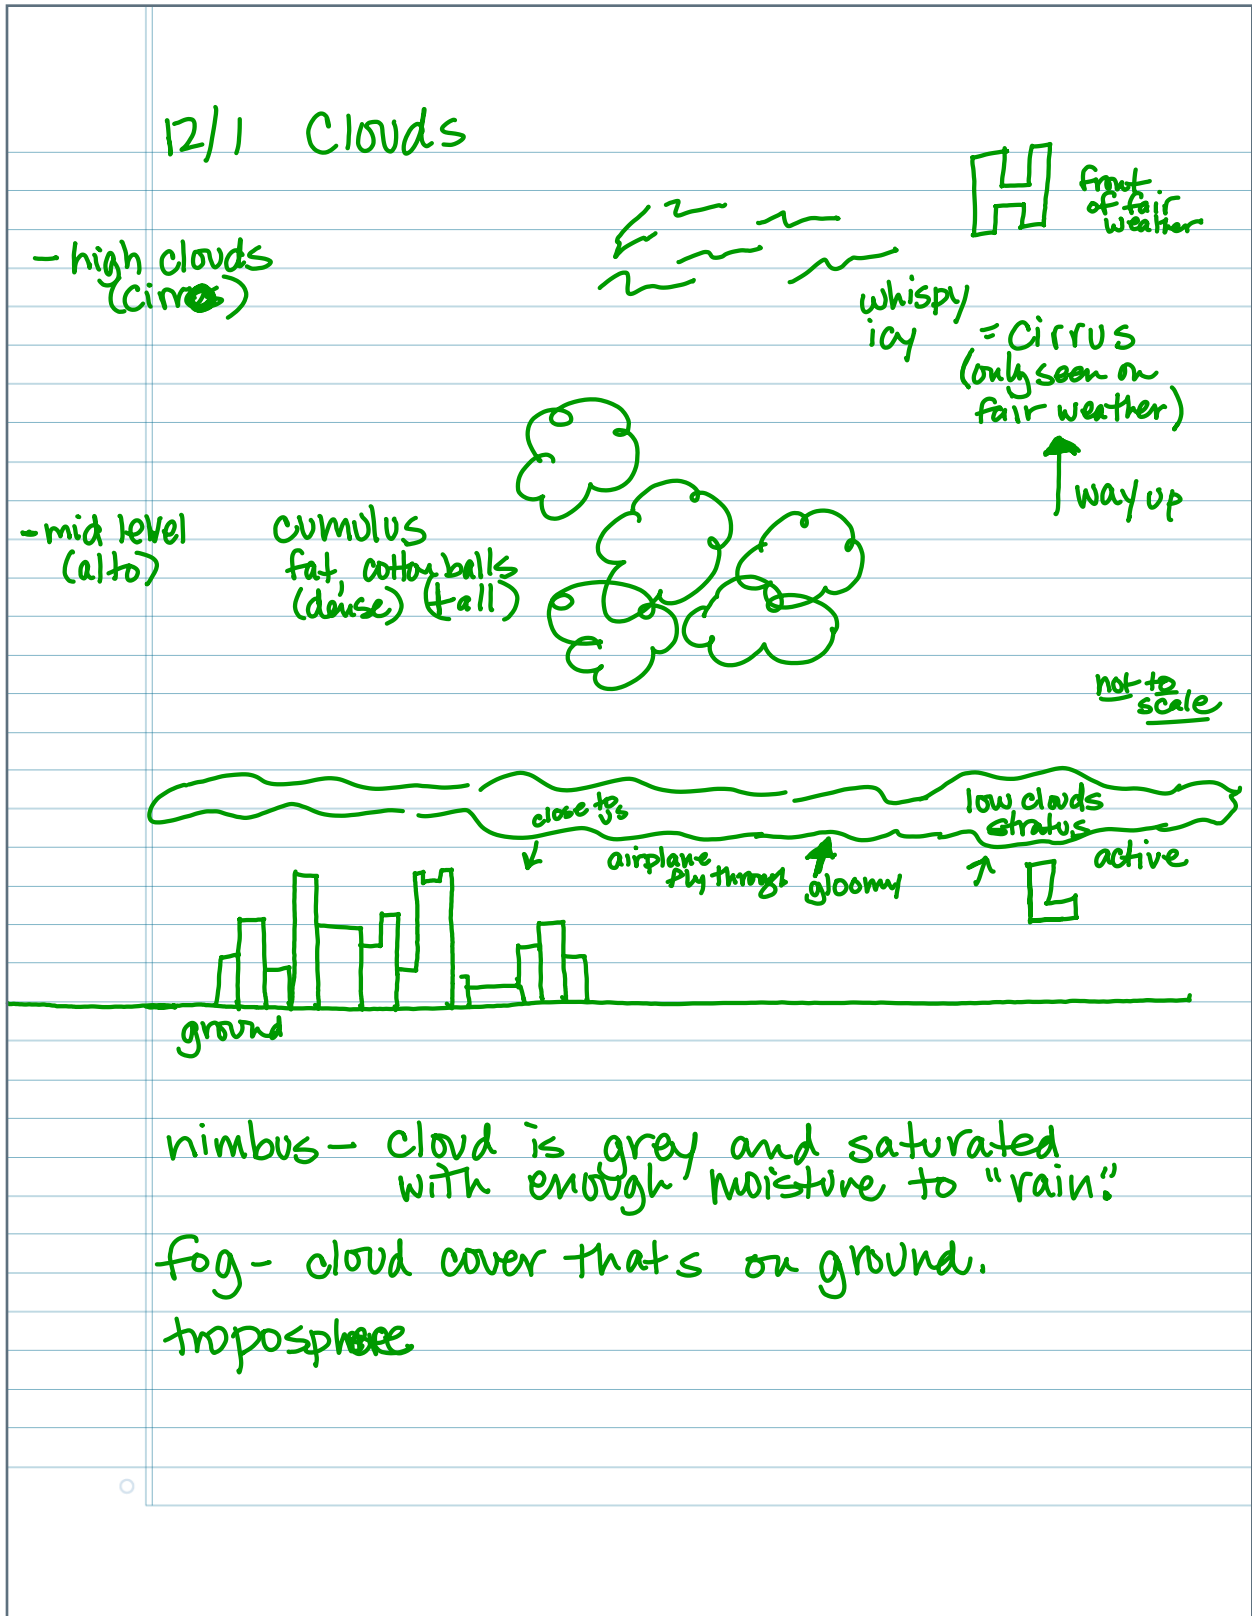 12/1 Clouds
H
front
of fair
weather
- high clouds
(cirro)
whispy
icy
= Cirrus
(only seen on
fair weather)
way up
- mid level
(alto)
cumulus
fat, cotton balls
(dense) (tall)
not to
scale
close to
us
low clouds
stratus
airplane
fly through
gloomy
active
L
ground
nimbus - cloud is grey and saturated
with enough moisture to "rain."
fog - cloud cover thats on ground.
troposphere